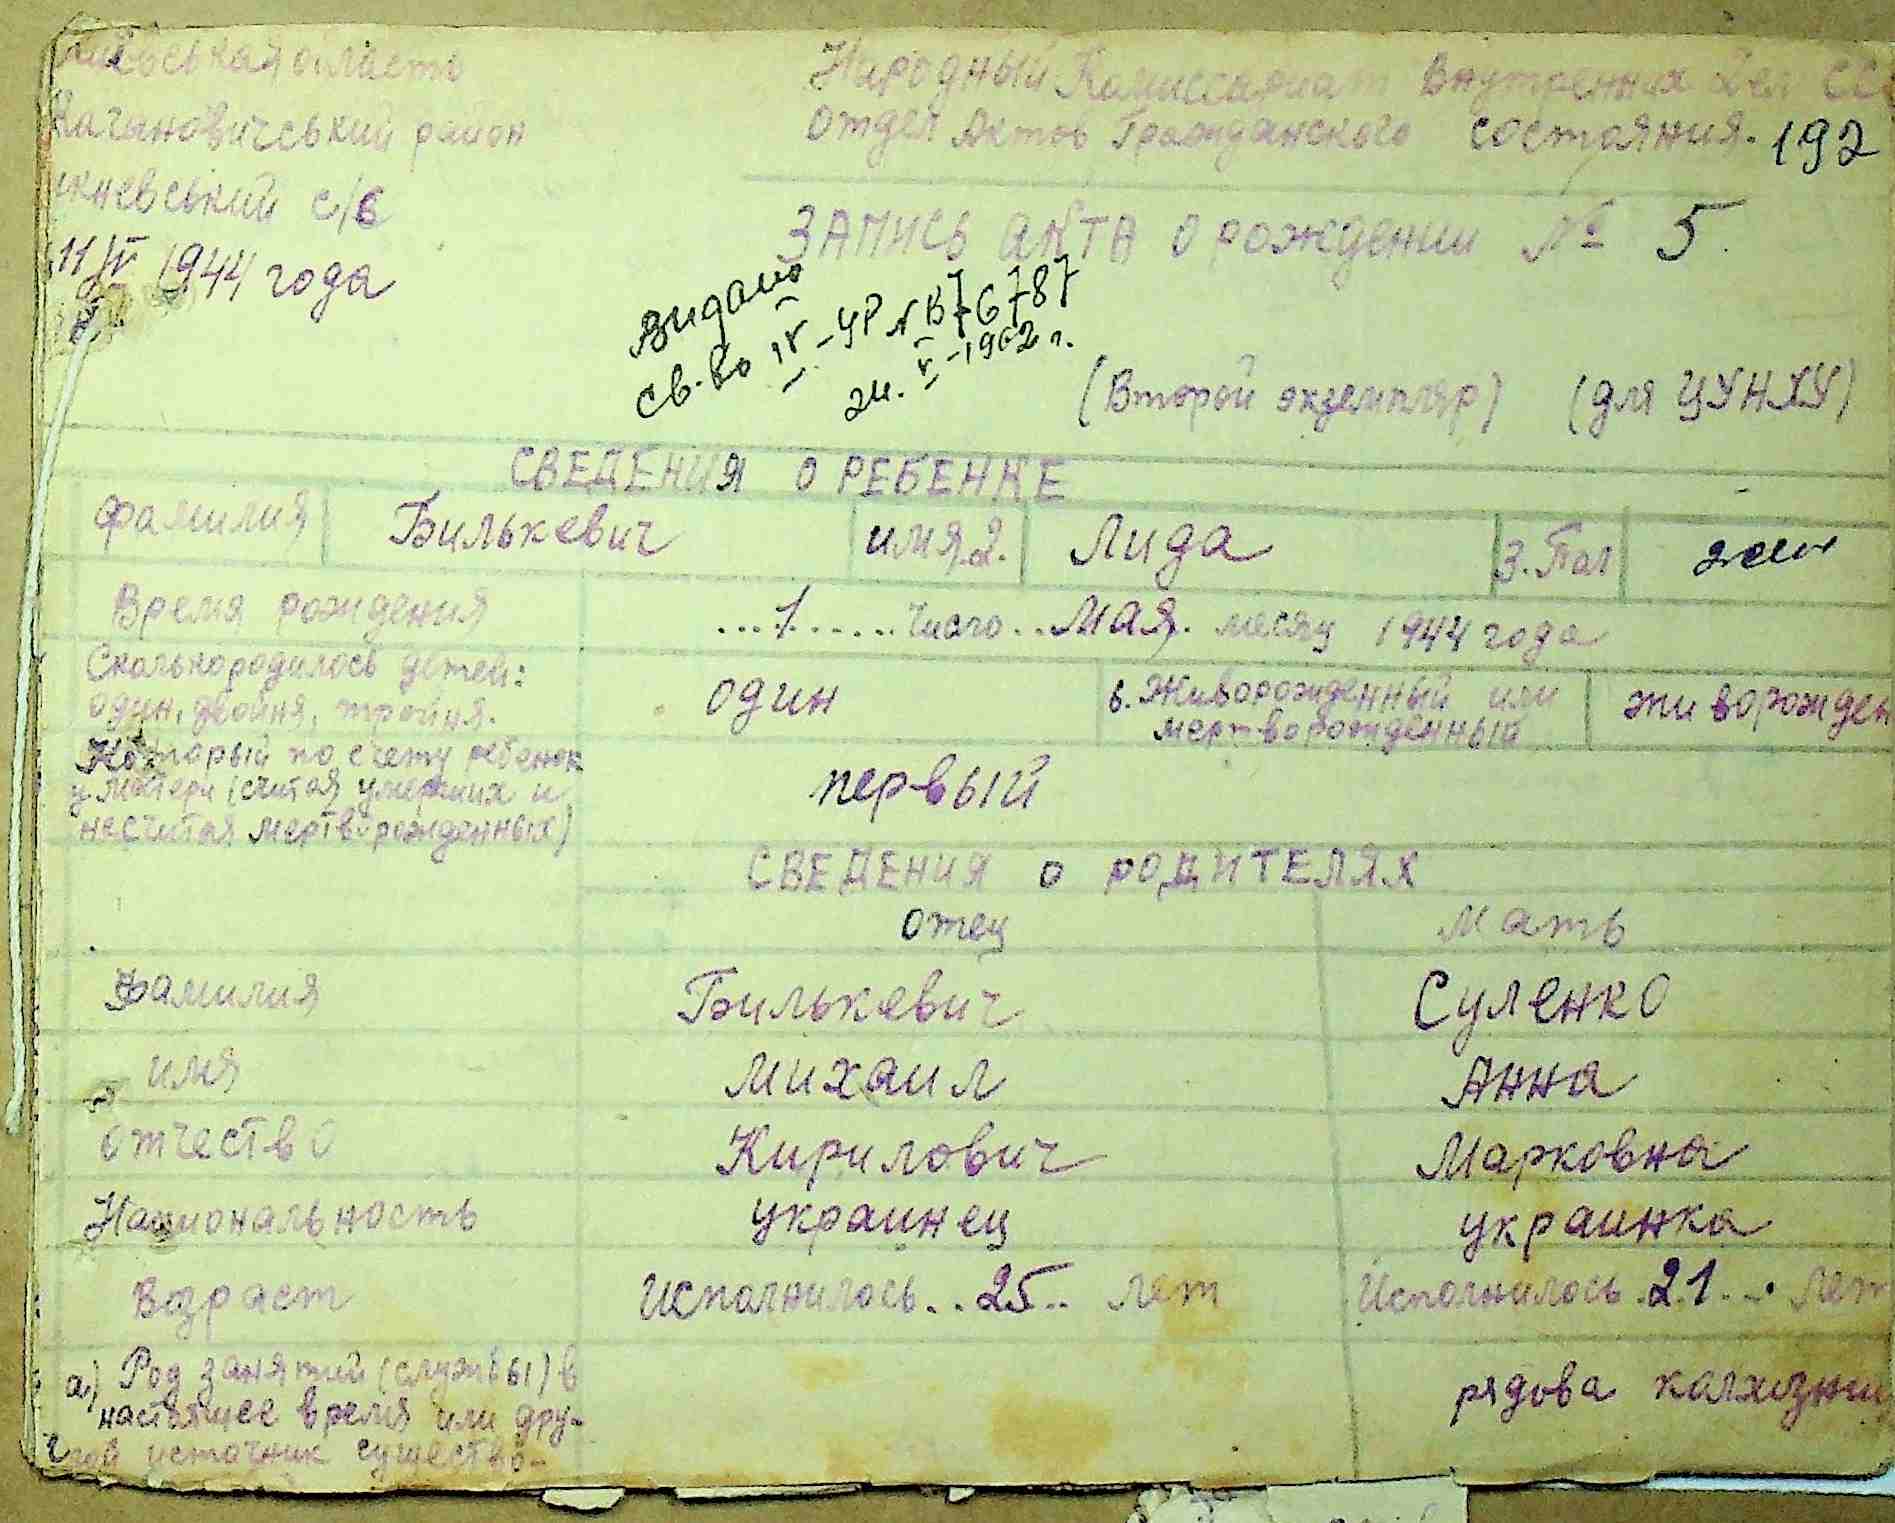 область
Народный Комиссариат Внутренних Дел ССС
Кагановичський район
отдел Актов Гражданского состояния. 192
с/в
ЗАПИСЬ АКТА О рождении № 5.
11/V 1944 года
Видано
св-во IV-УР № 767
V-1962 г.
(Второй экземпляр) (для ЦУНХУ)
СВЕДЕНИЯ О РЕБЕНКЕ
фамилия Билькевич имя 2. Лида 3. Пол жен
Время рождения ...1......число..Мая. месяц 1944 года
Сколько родилось детей:
один, двойня, тройня.
один
в. Живорожденный или
мертворожденный
живорожден
Который по счету ребенок
у матери (считая умерших и
не считая мертворожденных)
первый
СВЕДЕНИЯ О РОДИТЕЛЯХ
отец мать
Фамилия Билькевич Суленко
имя Михаил Анна
отчество Кирилович Марковна
Национальность украинец украинка
Возраст Исполнилось..25.. лет Исполнилось.21... лет
а) Род занятий (службы) в
настоящее время или дру-
гой источник существо-
рядова калхозниц